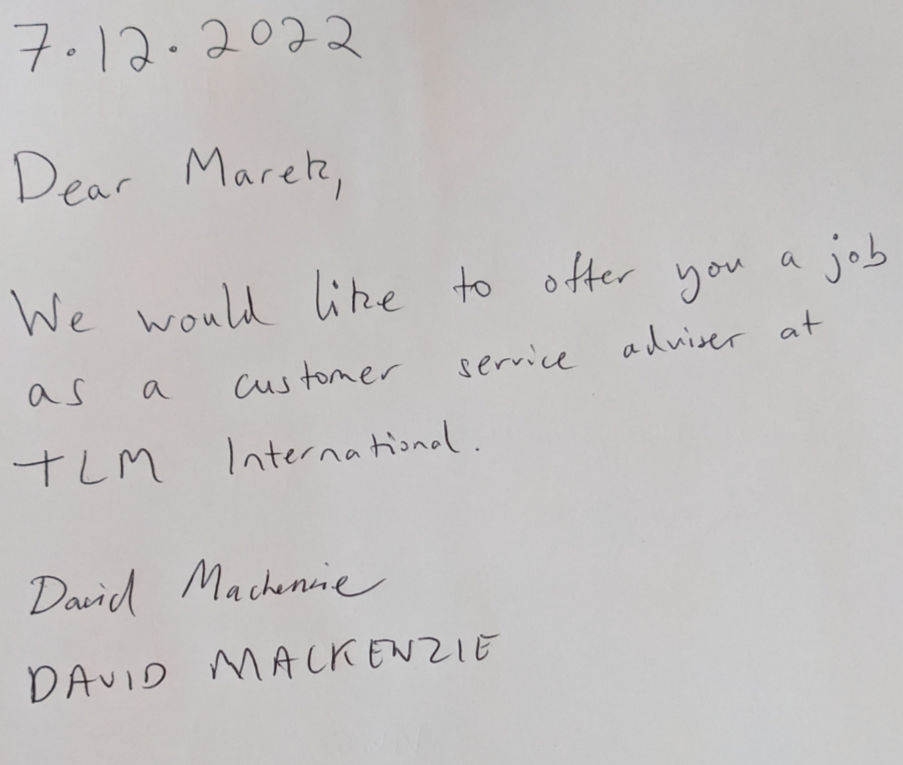 7.12.2022
Dear Marek,
We would like to offer you a job
as a customer service adviser at
TLM International.
David Mackenzie
DAVID MACKENZIE